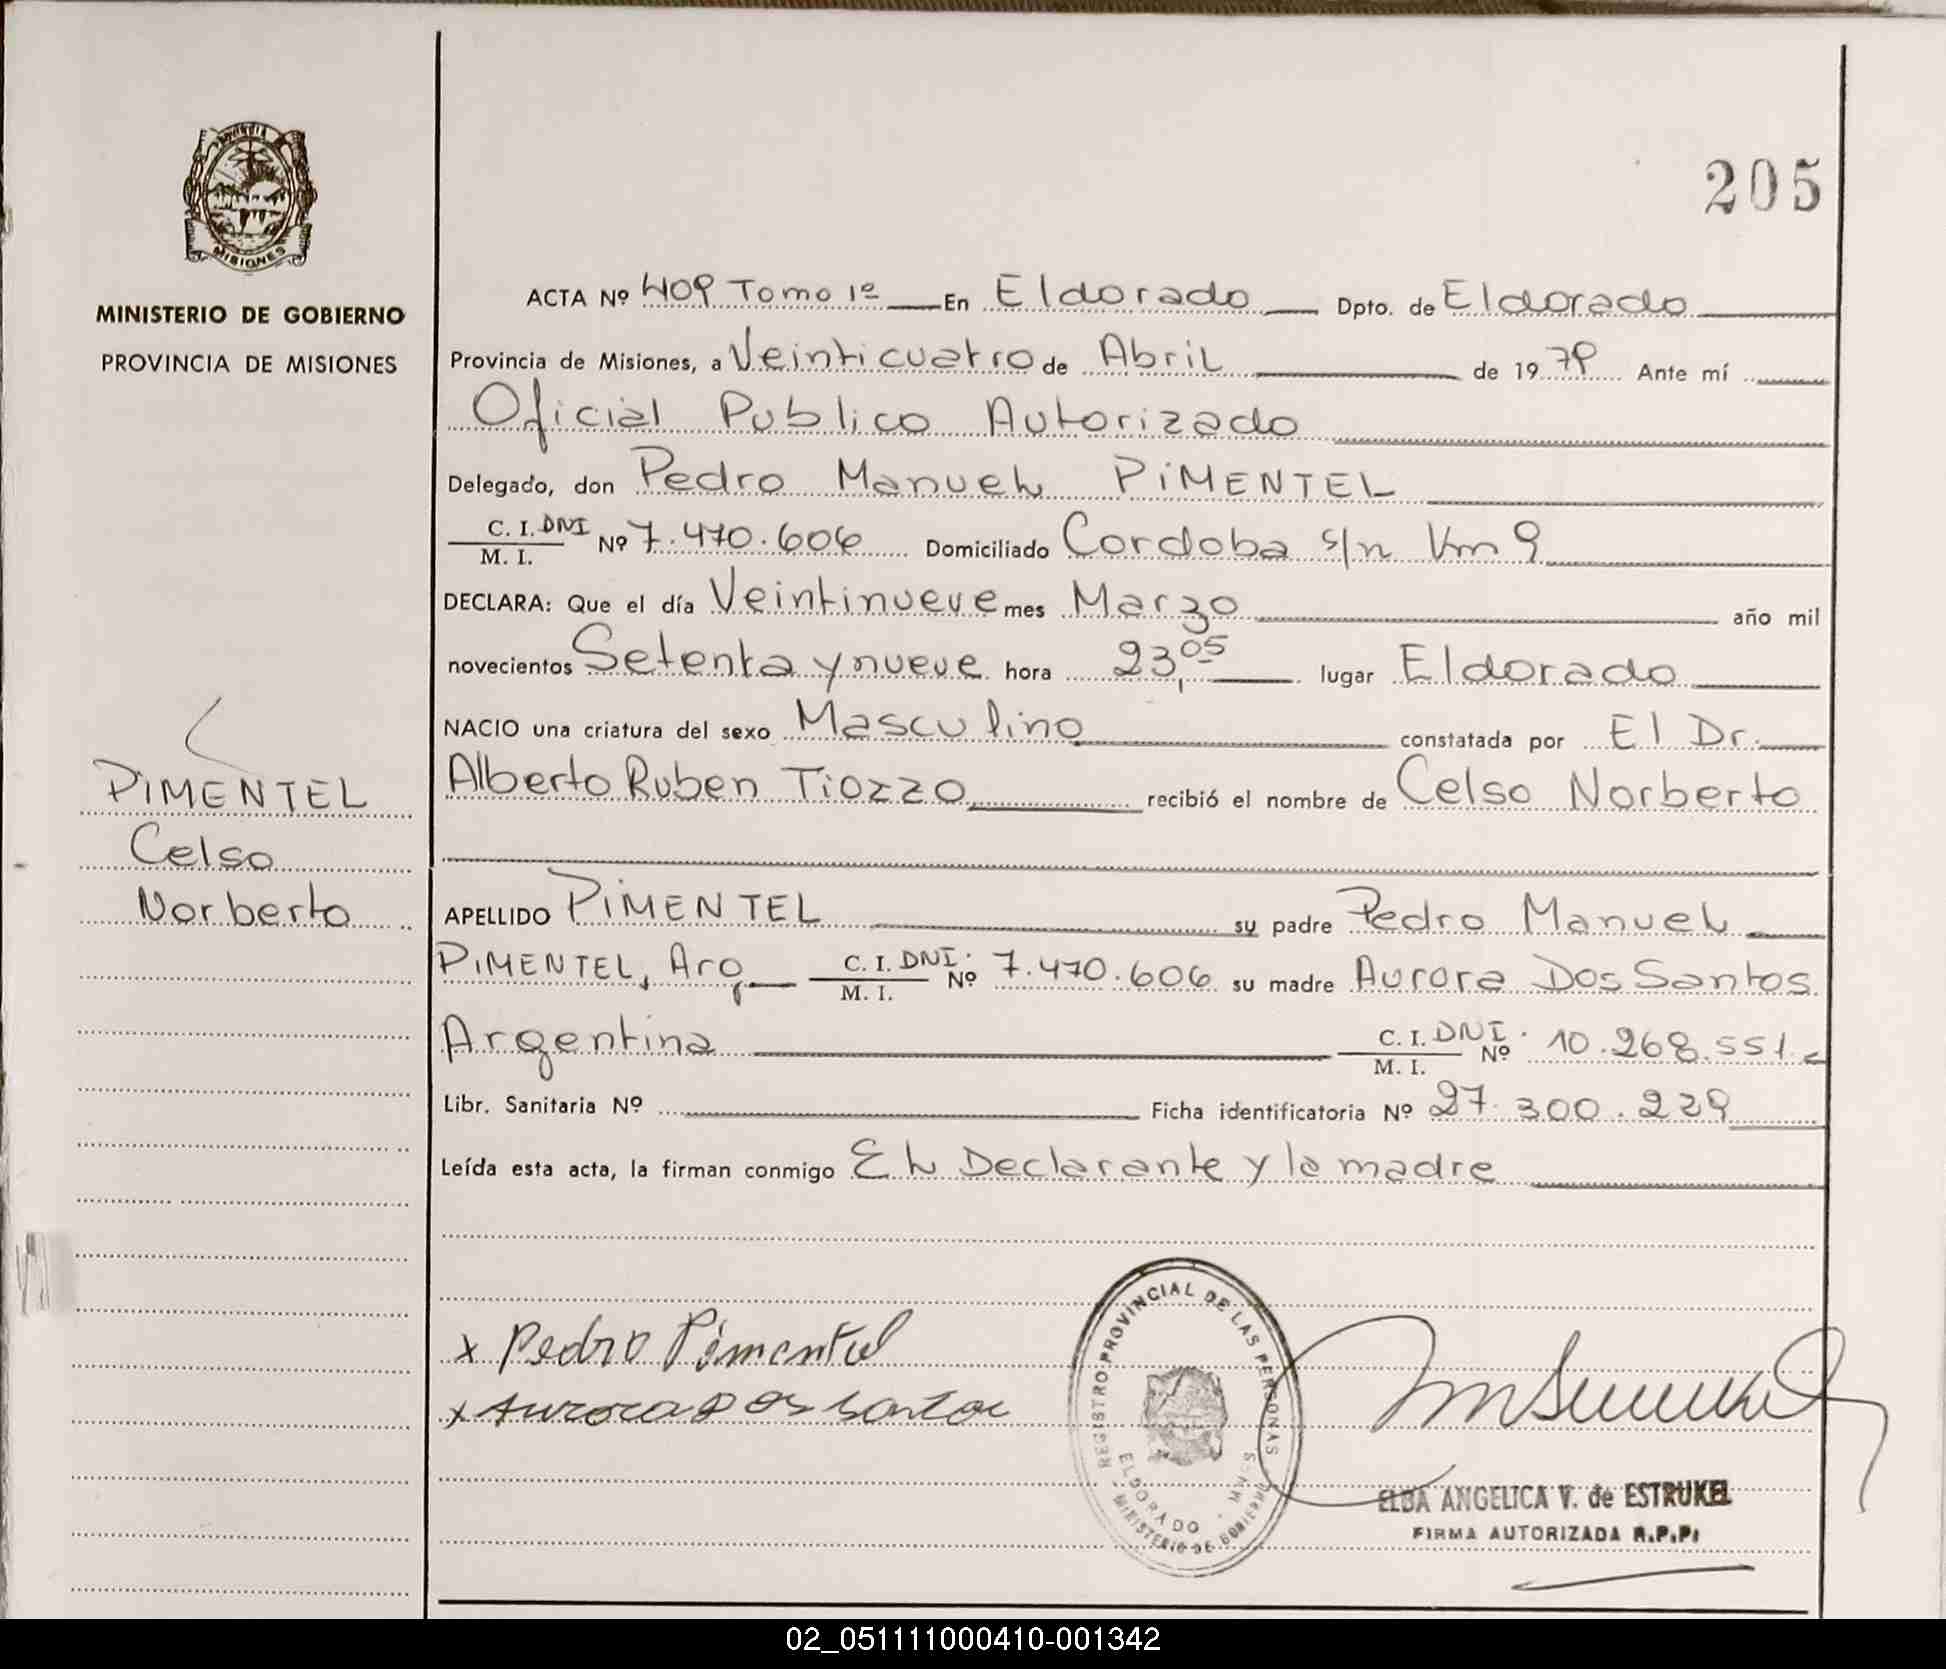 205
MISIONES
MINISTERIO DE GOBIERNO
PROVINCIA DE MISIONES
PIMENTEL
Celso
Norberto
ACTA Nº 409 Tomo 1º En Eldorado Dpto. de Eldorado
Provincia de Misiones, a Veinticuatro de Abril de 1979 Ante mí
Oficial Publico Autorizado
Delegado, don Pedro Manuel PIMENTEL
C. I. DNI M. I. Nº 7.470.606 Domiciliado Cordoba s/n Km 9
DECLARA: Que el día Veintinueve mes Marzo año mil
novecientos Setenta y nueve hora 23,05 lugar Eldorado
NACIO una criatura del sexo Masculino constatada por El Dr.
Alberto Ruben Tiozzo recibió el nombre de Celso Norberto
APELLIDO PIMENTEL su padre Pedro Manuel
PIMENTEL, Arg. C. I. DNI. M. I. Nº 7.470.606 su madre Aurora Dos Santos
Argentina C. I. DNI. M. I. Nº 10.268.551
Libr. Sanitaria Nº Ficha identificatoria Nº 27.300.229
Leída esta acta, la firman conmigo El Declarante y la madre
x Pedro Pimentel
x Aurora Dos Santos
REGISTRO PROVINCIAL DE LAS PERSONAS
ELDORADO - MNES.
MINISTERIO DE GOBIERNO
ELBA ANGELICA V. de ESTRUKEL
FIRMA AUTORIZADA R.P.P.
02_051111000410-001342